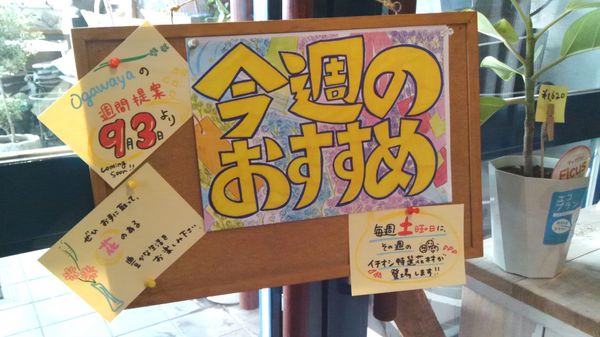 Ogawayaの
週間提案
9月3日より
coming soon!!
今週の
おすすめ
ぜひ お手に取って、
花のある
豊かな生活を
お楽しみ下さい
毎週土曜日に、
その週の
イチオシ特選花材が
登場します!!
¥620
Ficus
エコ